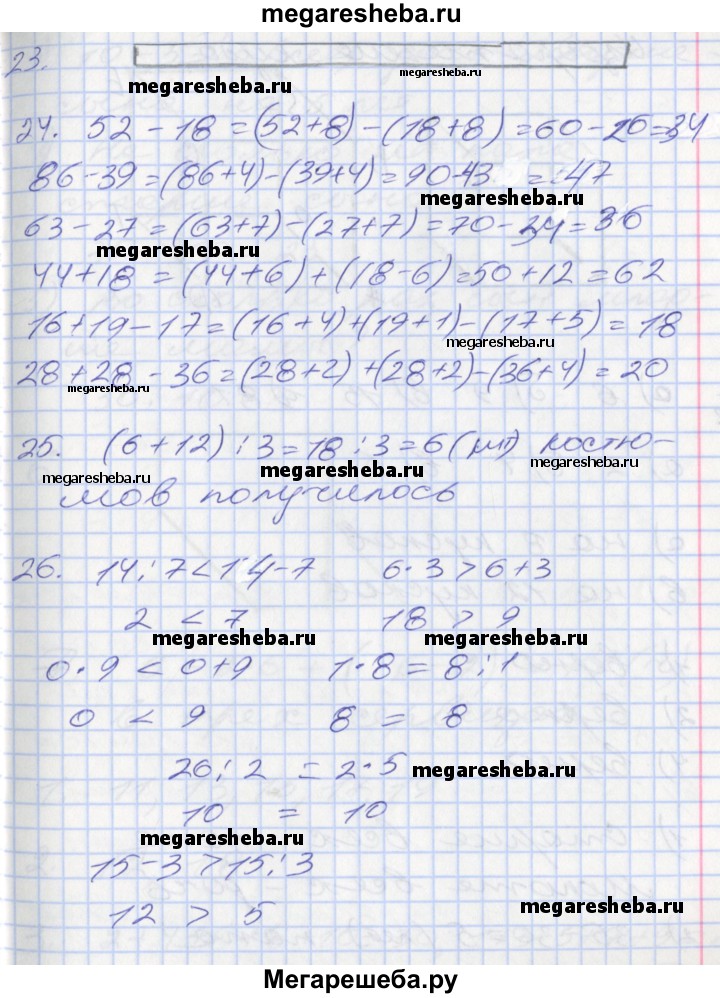 megaresheba.ru
23.
megaresheba.ru megaresheba.ru
24. 52 - 18 = (52+8) - (18+8) = 60 - 26 = 34
86 - 39 = (86+4) - (39+4) = 90 - 43 = 47
megaresheba.ru
63 - 27 = (63+7) - (27+7) = 70 - 34 = 36
megaresheba.ru
44 + 18 = (44+6) + (18-6) = 50 + 12 = 62
16 + 19 - 17 = (16+4) + (19+1) - (17+5) = 18
megaresheba.ru
28 + 28 - 36 = (28+2) + (28+2) - (36+4) = 20
megaresheba.ru
25. (6 + 12) : 3 = 18 : 3 = 6 (шт) костю-
megaresheba.ru megaresheba.ru
мов получилось
26. 14 : 7 < 14 - 7 6 · 3 > 6 + 3
2 < 7 18 > 9
megaresheba.ru megaresheba.ru
0 · 9 < 0 + 9 1 · 8 = 8 : 1
0 < 9 8 = 8
26 : 2 = 2 · 5
megaresheba.ru
10 = 10
megaresheba.ru
15 - 3 > 15 : 3
12 > 5
megaresheba.ru
Мегарешеба.ру